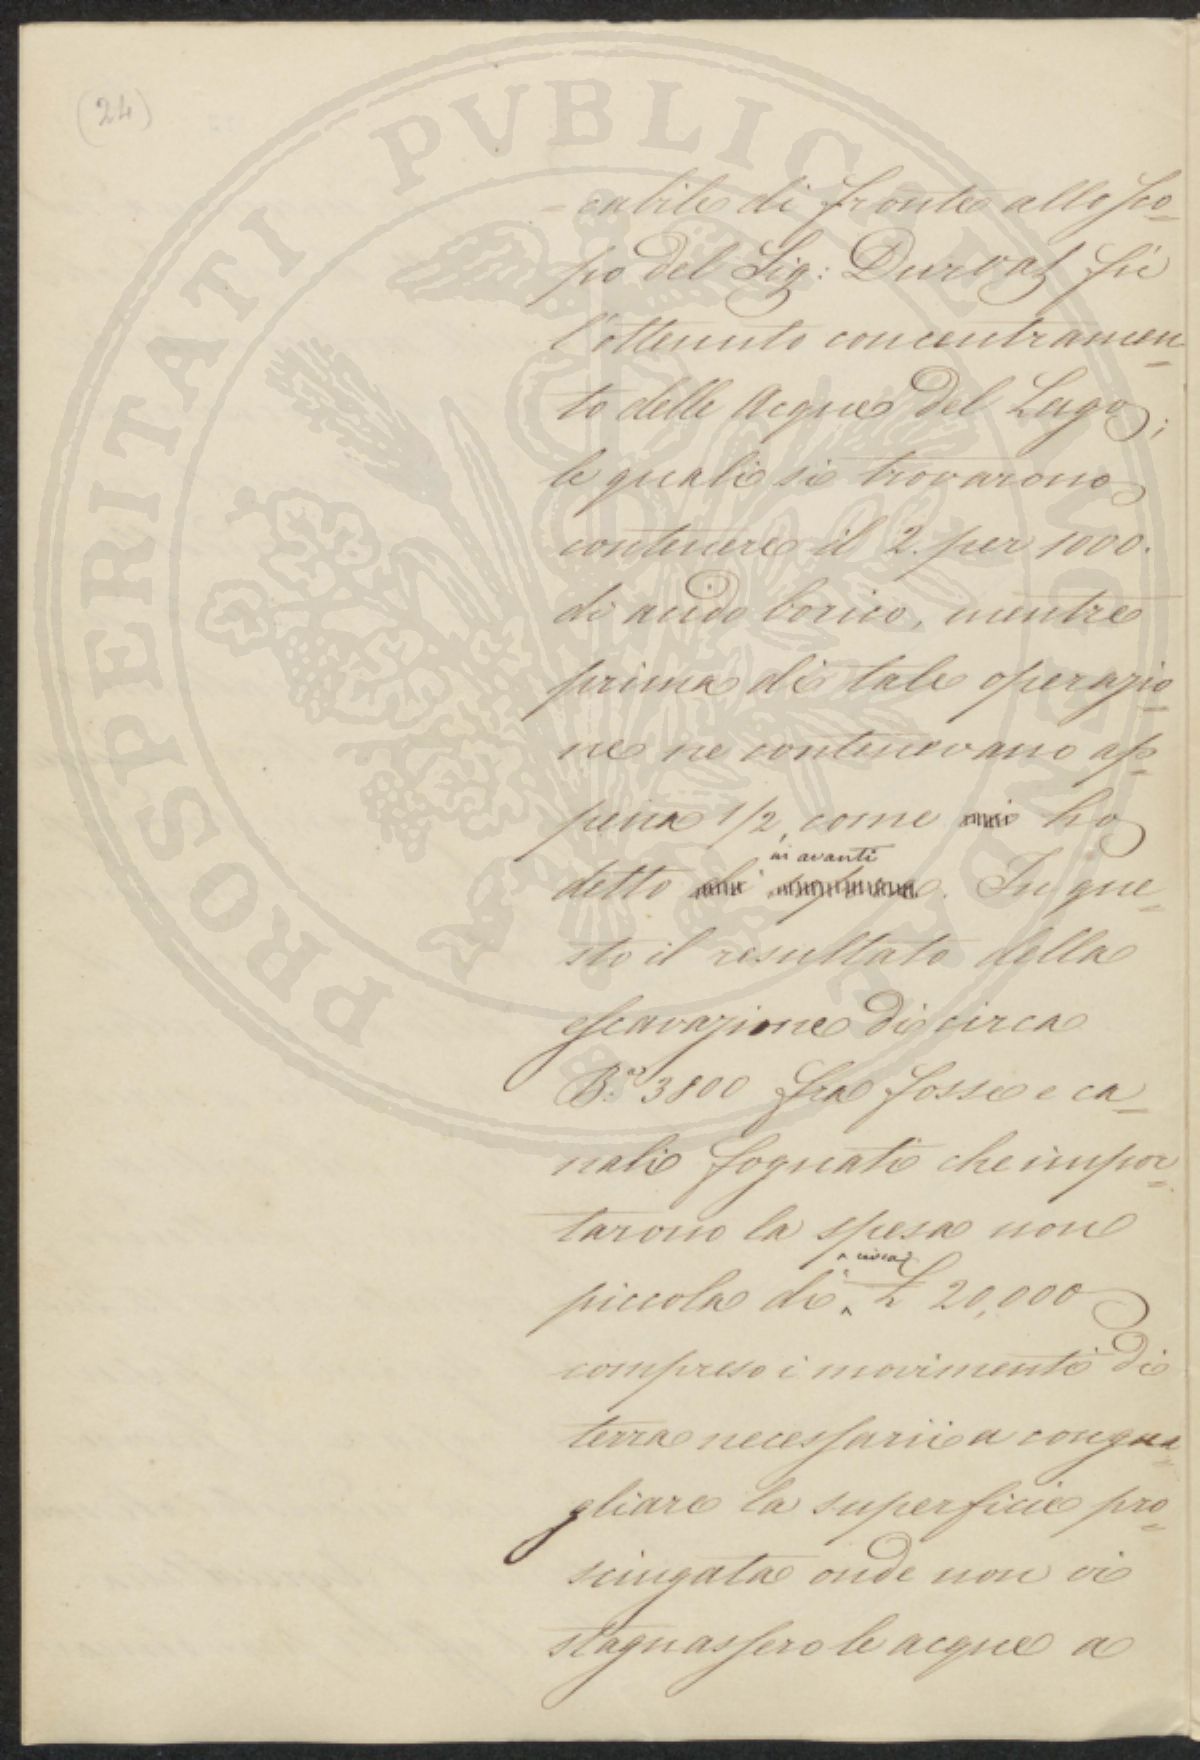 (24)
- cabile di fronte allo sco=
po del Sig: Durval fù
l'ottenuto concentramen=
to delle Acque del Lago;
le quali si trovarono
contenere il 2. per 1000.
di acido borico, mentre
prima di tale operazio=
ne ne contenevano ap=
pena 1/2, come ho
in avanti
detto . Fu que=
sto il resultato della
escavazione di circa
B.e 3800 fra fosse e ca=
nali fognati che impor=
tarono la spesa non
circa
piccola di £ 20,000
compreso i movimenti di
terra necessarii a congua=
gliare la superficie pro=
sciugata onde non vi
stagnassero le acque a
PROSPERITATI PVBLICAE AVGENDAE